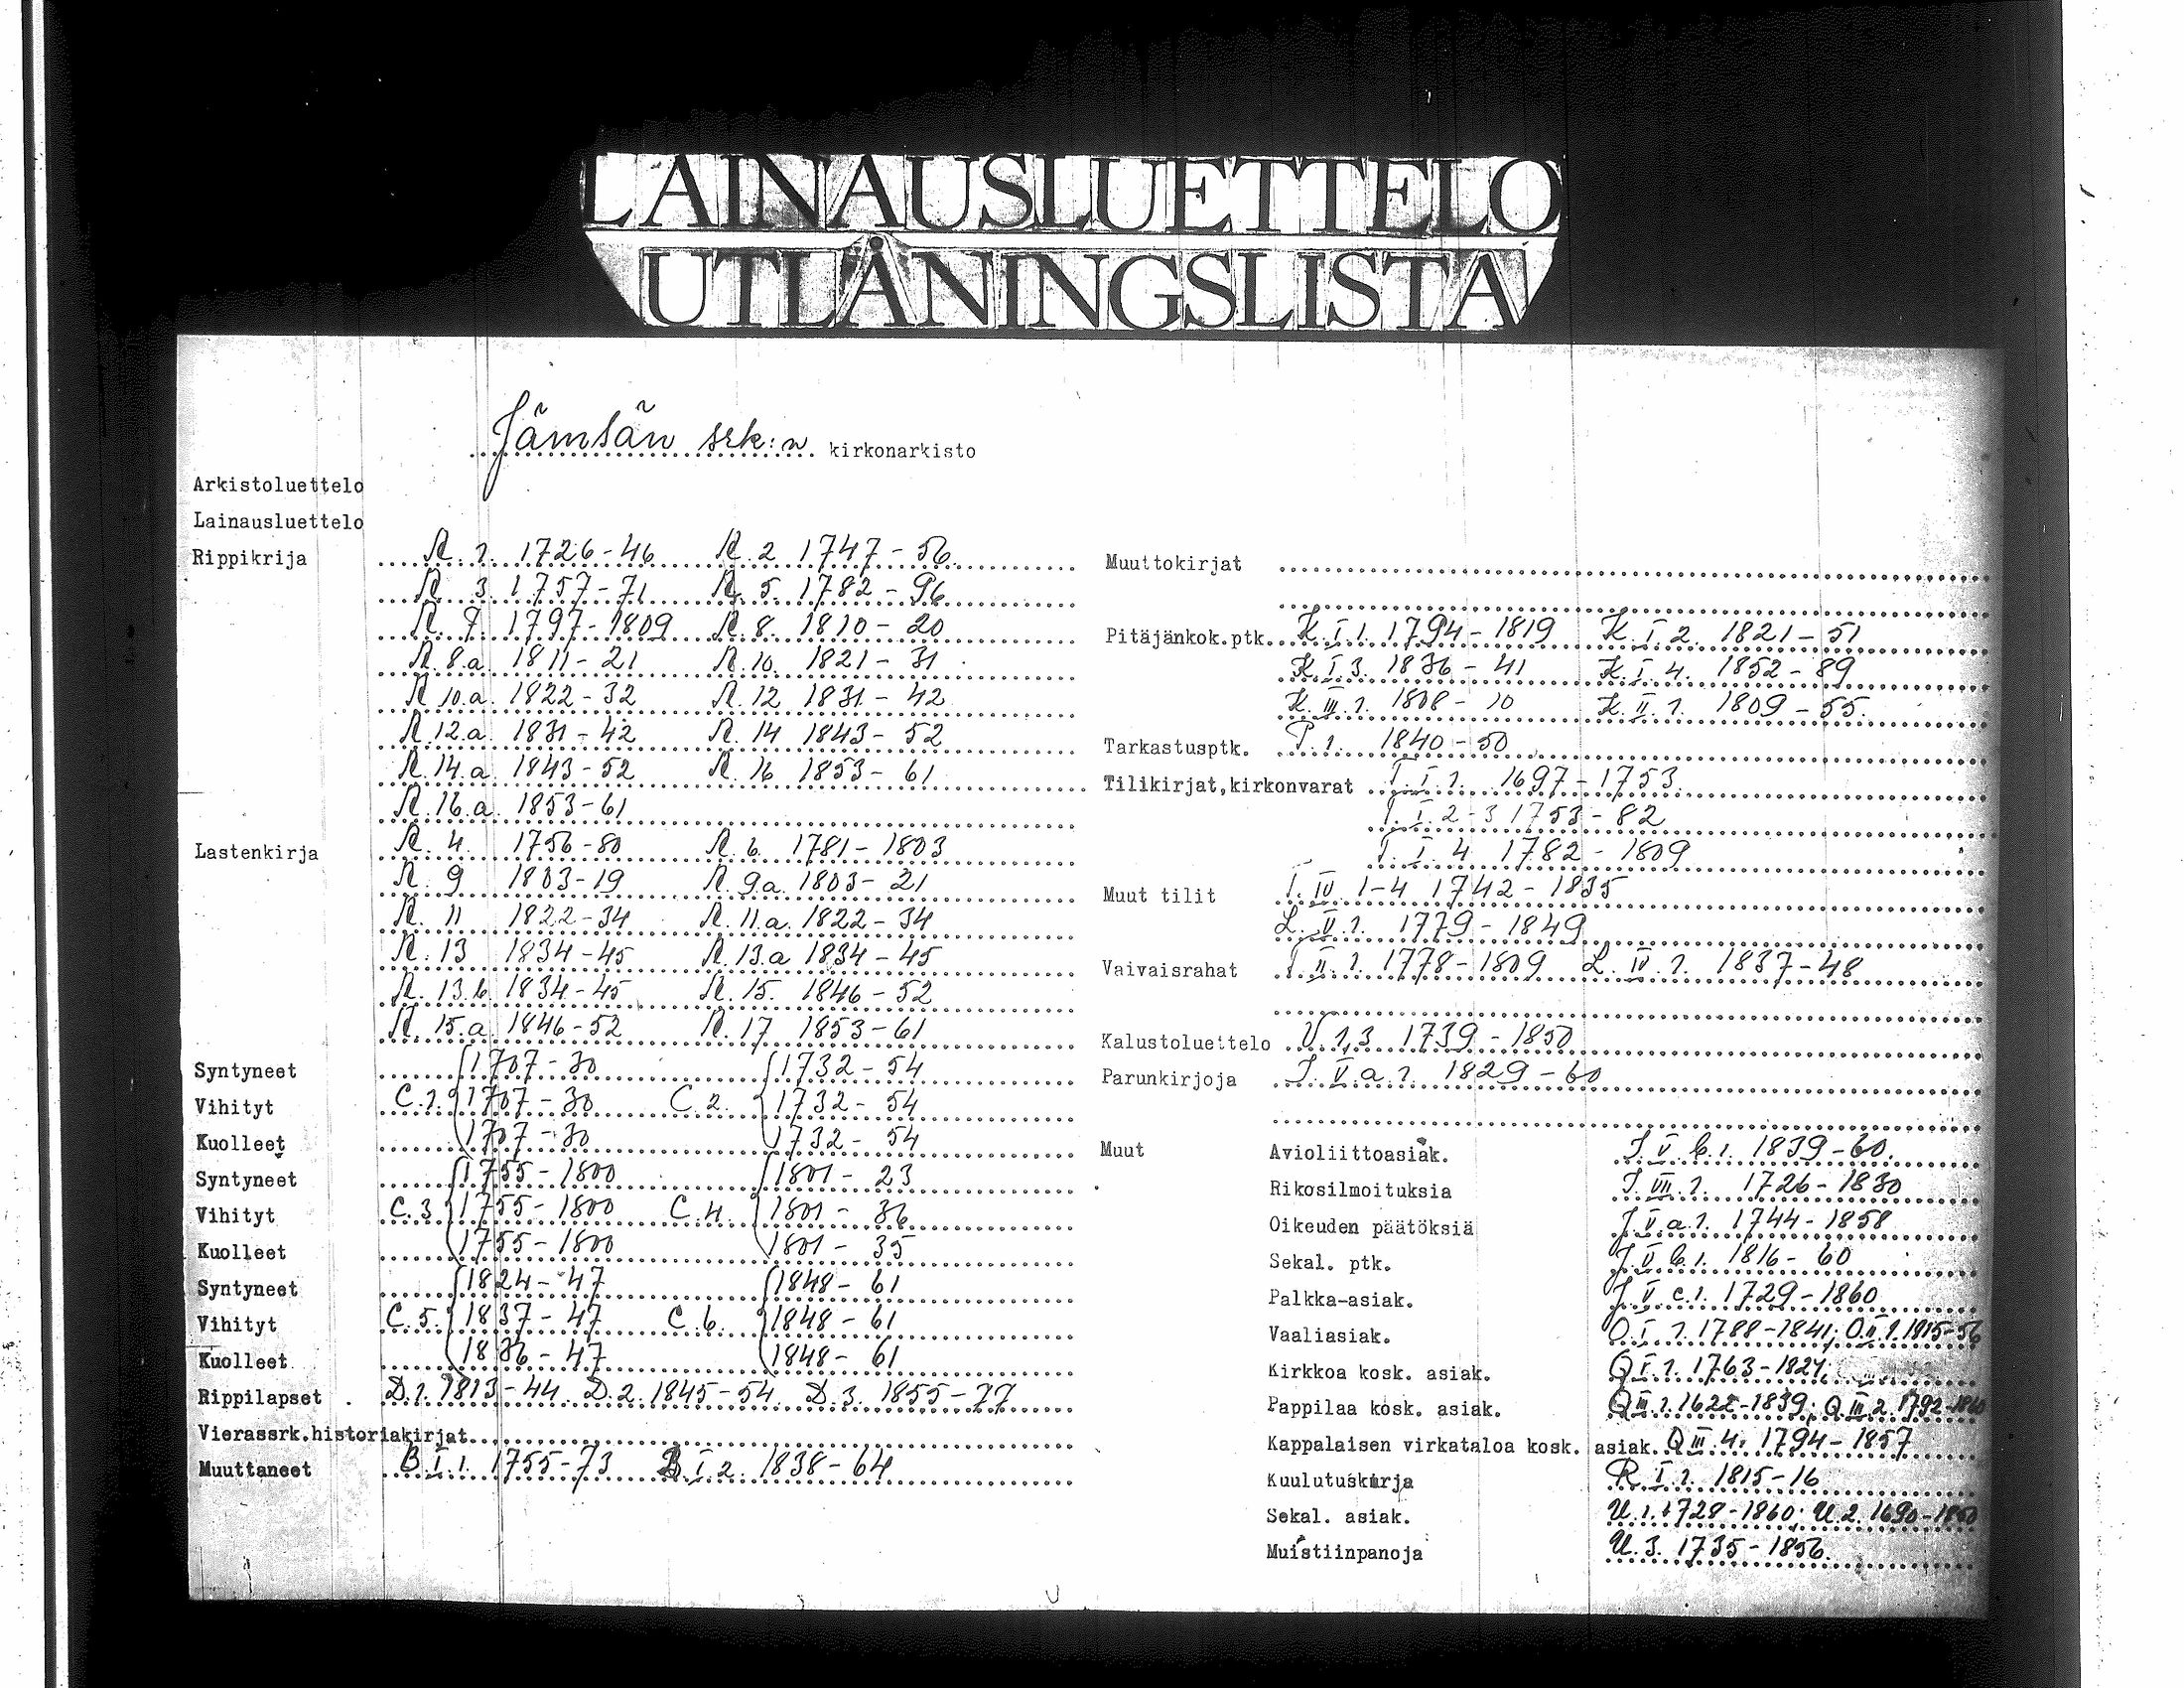 LAINAUSLUETTELO
UTLÅNINGSLISTA
Jämsän srk:n kirkonarkisto
Arkistoluettelo
Lainausluettelo
Rippikrija R. 1. 1726-46 R. 2 1747-56
R. 3 1757-71 R. 5. 1782-96
R. 7 1797-1809 R. 8. 1810-20
R. 8.a. 1811-21 R. 10. 1821-31
R 10.a. 1822-32 R. 12 1831-42
R. 12.a. 1831-42 R. 14 1843-52
R. 14.a. 1843-52 R. 16 1853-61
R. 16.a. 1853-61
Lastenkirja R. 4. 1756-80 R. 6. 1781-1803
R. 9 1803-19 R. 9.a. 1803-21
R. 11 1822-34 R. 11.a. 1822-34
R. 13 1834-45 R. 13.a 1834-45
R. 13.b. 1834-45 R. 15. 1846-52
R. 15.a. 1846-52 R. 17 1853-61
Syntyneet 1707-30 1732-54
Vihityt C. 1. 1707-30 C. 2. 1732-54
Kuolleet 1707-30 1732-54
Syntyneet 1755-1800 1801-23
Vihityt C. 3 1755-1800 C. 4. 1801-36
Kuolleet 1755-1800 1801-35
Syntyneet 1824-47 1848-61
Vihityt C. 5. 1837-47 C. 6. 1848-61
Kuolleet 1836-47 1848-61
Rippilapset D. 1. 1813-44. D. 2. 1845-54. D. 3. 1855-77
Vierassrk.historiakirjat
Muuttaneet B. I. 1. 1755-73 B. I. 2. 1838-64
Muuttokirjat
Pitäjänkok.ptk. K. I. 1. 1794-1819 K. I. 2. 1821-51
K. I. 3. 1836-41 K. I. 4. 1852-89
K. III. 1. 1808-10 K. II. 1. 1809-55.
Tarkastusptk. P. 1. 1840-50
Tilikirjat,kirkonvarat T. I. 1. 1697-1753
T. I. 2-3 1753-82
T. I. 4 1782-1809
Muut tilit T. IV. 1-4 1742-1835
L. V. 1. 1779-1849
Vaivaisrahat T. II. 1. 1778-1809 L. IV. 1. 1837-48
Kalustoluettelo V. 1,3 1739-1850
Parunkirjoja I. V. a. 1. 1829-60
Muut Avioliittoasiak. I. V. b. 1. 1839-60.
Rikosilmoituksia I. VII. 1. 1726-1830
Oikeuden päätöksiä J. V. a. 1. 1744-1858
Sekal. ptk. J. V. b. 1. 1816-60
Palkka-asiak. J. V. c. 1. 1729-1860
Vaaliasiak. O. I. 1. 1788-1841; O. II. 1.
Kirkkoa kosk. asiak. Q I. 1. 1763-1824;
Pappilaa kosk. asiak. Q III. 1. 1622-1839; Q III. 2. 1792-1860
Kappalaisen virkataloa kosk. asiak. Q III. 4. 1794-1857
Kuulutuskirja R. I. 1. 1815-16
Sekal. asiak. U. 1. 1728-1860; U. 2. 1690-1850
Muistiinpanoja U. 3. 1735-1856.